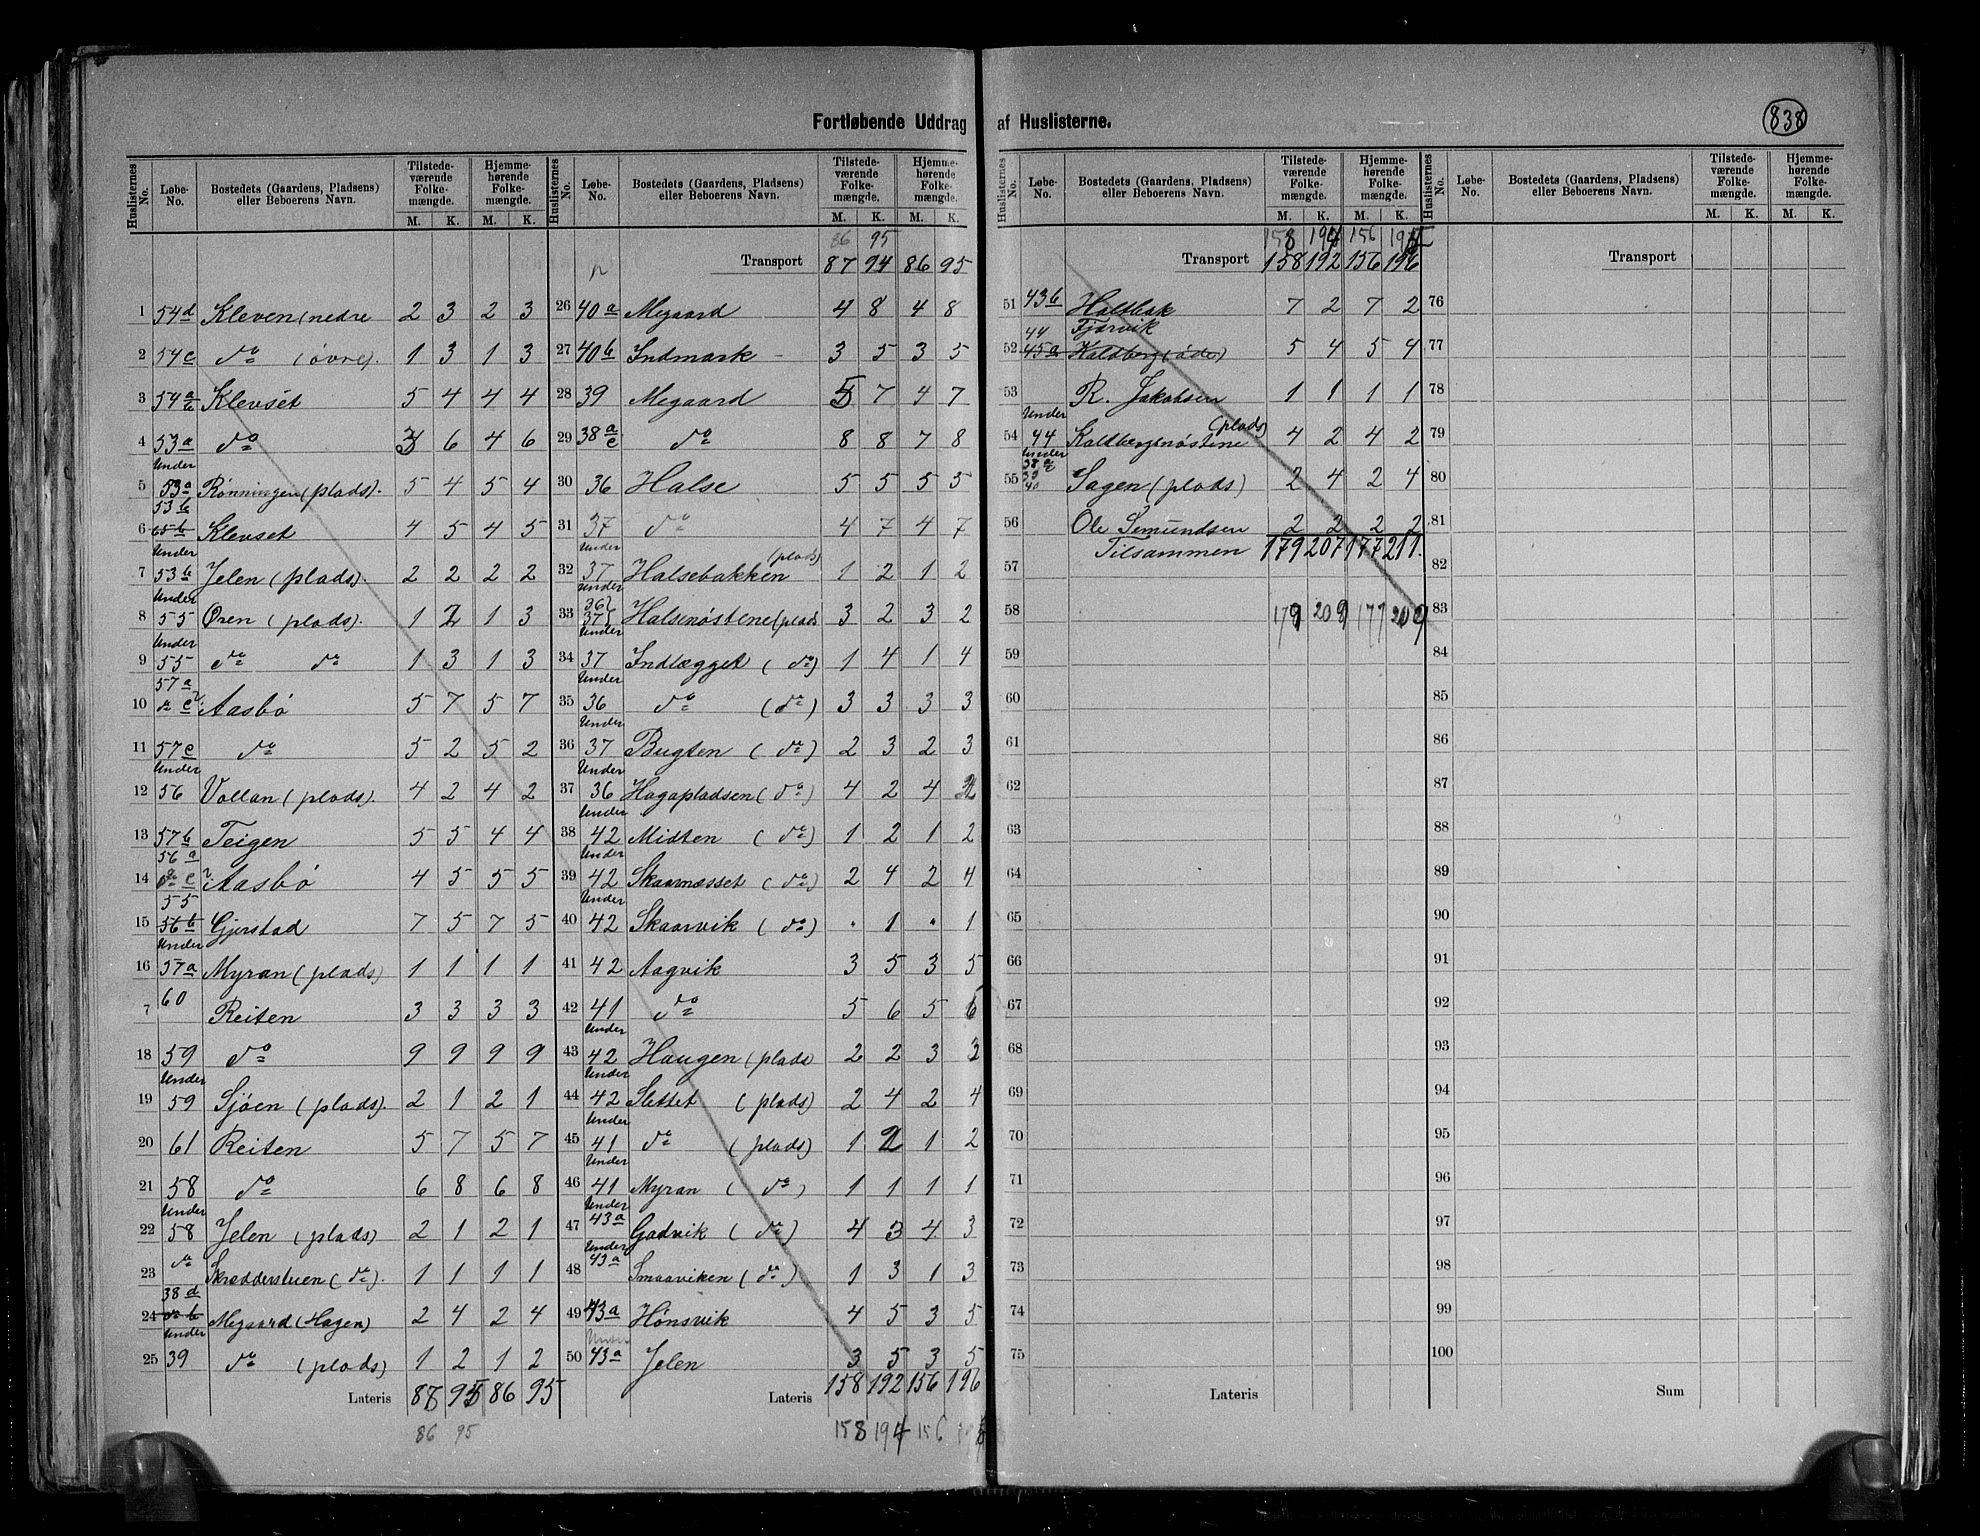 838
Fortløbende Uddrag af Huslisterne.
Huslisternes No. Løbe-No. Bostedets (Gaardens, Pladsens) eller Beboerens Navn. Tilstedeværende Folkemængde. M. K. Hjemmehørende Folkemængde. M. K.
1 54d Kleven (nedre 2 3 2 3
2 54c do (øvre). 1 3 1 3
3 54a b Klevset 5 4 4 4
4 53a do 3 6 4 6
5 Under 53a Rønningen (plads). 5 4 5 4
6 53b Klevset 4 5 4 5
7 Under 53b Jelen (plads). 2 2 2 2
8 Under 55 Øren (plads). 1 2 1 3
9 Under 55 do do 1 3 1 3
10 57a & c Aasbø 5 7 5 7
11 57e do 5 2 5 2
12 Under 56 Vollan (plads). 4 2 4 2
13 57b Teigen 5 5 4 4
14 56a & c Aasbø 4 5 5 5
15 55 56b Gjerstad 7 5 7 5
16 Under 57a Myran (plads) 1 1 1 1
7 60 Reiten 3 3 3 3
18 59 do 9 9 9 9
19 Under 59 Sjøen (plads). 2 1 2 1
20 61 Reiten 5 7 5 7
21 58 do 6 8 6 8
22 Under 58 Jelen (plads) 2 1 2 1
23 do Skrædderstuen (do). 1 1 1 1
24 38d Megaard (Hagen) 2 4 2 4
25 Under 39 do (plads) 1 2 1 2
Lateris 87 95 86 95
86 95
Huslisternes No. Løbe-No. Bostedets (Gaardens, Pladsens) eller Beboerens Navn. Tilstedeværende Folkemængde. M. K. Hjemmehørende Folkemængde. M. K.
86 95
Transport 87 94 86 95
26 40a Megaard 4 8 4 8
27 40b Indmark - 3 5 3 5
28 39 Megaard 5 7 4 7
29 38a c do 8 8 7 8
30 36 Halse 5 5 5 5
31 37 do 4 7 4 7
32 Under 37 Halsebakken (plads) 1 2 1 2
33 Under 36 37 Halsenøstene (plads 3 2 3 2
34 Under 37 Indlægget (do) 1 4 1 4
35 Under 36 do (do) 3 3 3 3
36 Under 37 Bugten (do) 2 3 2 3
37 Under 36 Hagapladsen (do) 4 2 4 2
38 Under 42 Midten (do) 1 2 1 2
39 Under 42 Skaarnæsset (do) 2 4 2 4
40 Under 42 Skaarvik (do) . 1 . 1
41 42 Aagvik 3 5 3 5
42 41 do 5 6 5 6
43 Under 42 Haugen (plads 2 2 3 3
44 Under 42 Slettet (plads) 2 4 2 4
45 Under 41 do (plads) 1 2 1 2
46 Under 41 Myran (do) 1 1 1 1
47 Under 43a Godvik (do) 4 3 4 3
48 Under 43a Smaaviken (do) 1 3 1 3
49 43a Hønsvik 4 5 3 5
50 Under 43a Jelen 3 5 3 5
Lateris 158 192 156 196
158 194 156
Huslisternes No. Løbe-No. Bostedets (Gaardens, Pladsens) eller Beboerens Navn. Tilstedeværende Folkemængde. M. K. Hjemmehørende Folkemængde. M. K.
158 194 156
Transport 158 192 156 196
51 43b Haltbak 7 2 7 2
52 44 Fjærvik 5 4 5 4
45a Kaldberg (øde)
53 R. Jakobsen 1 1 1 1
54 Under 44 Kaldbergsnøstene (plads) 4 2 4 2
55 Under 38a 39 40 Sagen (plads) 2 4 2 4
56 Ole Semundsen 2 2 2 2
Tilsammen 179 207 177 211.
57
58 179 209 177 209
59
60
61
62
63
64
65
66
67
68
69
70
71
72
73
74
75
Lateris
Huslisternes No. Løbe-No. Bostedets (Gaardens, Pladsens) eller Beboerens Navn. Tilstedeværende Folkemængde. M. K. Hjemmehørende Folkemængde. M. K.
Transport
76
77
78
79
80
81
82
83
84
85
86
87
88
89
90
91
92
93
94
95
96
97
98
99
100
Sum